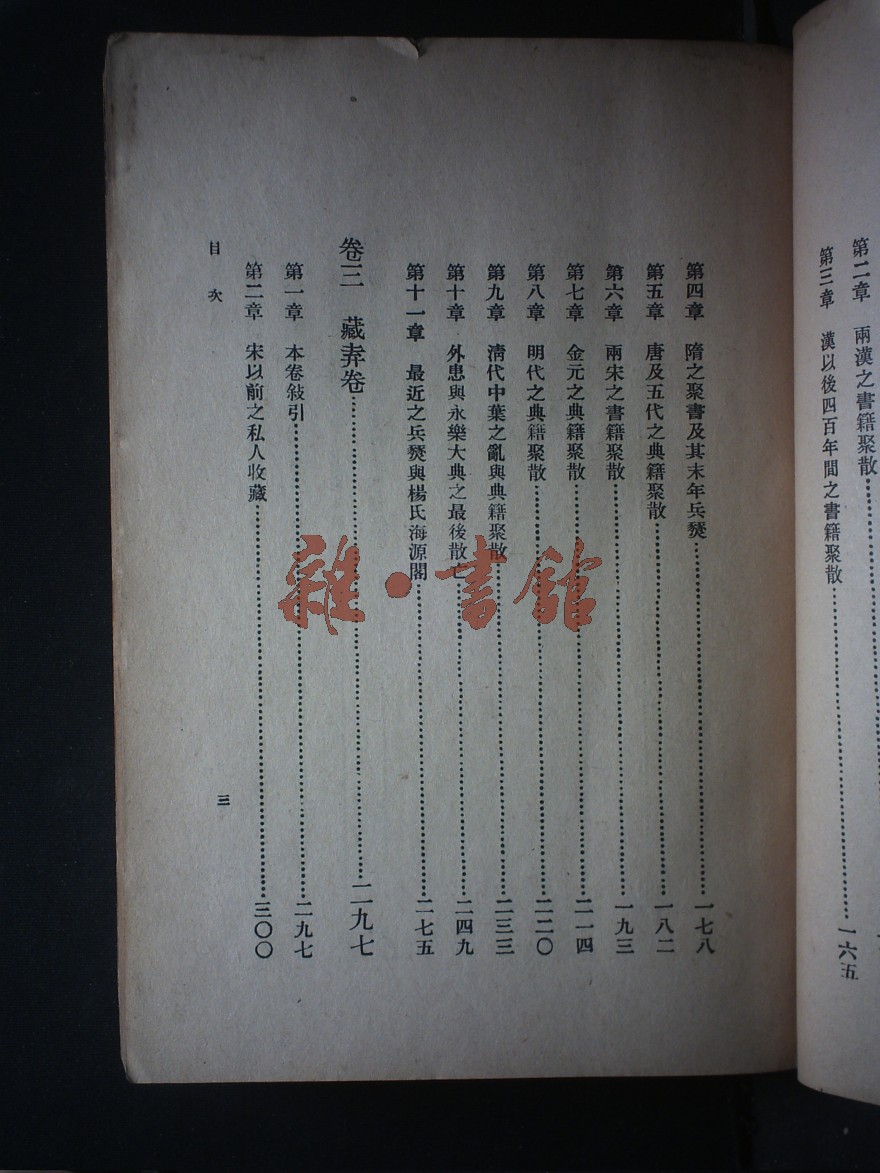 第二章　兩漢之書籍聚散
第三章　漢以後四百年間之書籍聚散……一六五
第四章　隋之聚書及其末年兵燹……一七八
第五章　唐及五代之典籍聚散……一八二
第六章　兩宋之書籍聚散……一九三
第七章　金元之典籍聚散……二一四
第八章　明代之典籍聚散……二二〇
第九章　清代中葉之亂與典籍聚散……二三三
第十章　外患與永樂大典之最後散亡……二四九
第十一章　最近之兵燹與楊氏海源閣……二七五
卷三　藏弆卷……二九七
第一章　本卷敍引……二九七
第二章　宋以前之私人收藏……三〇〇
目次
三
雜·書館